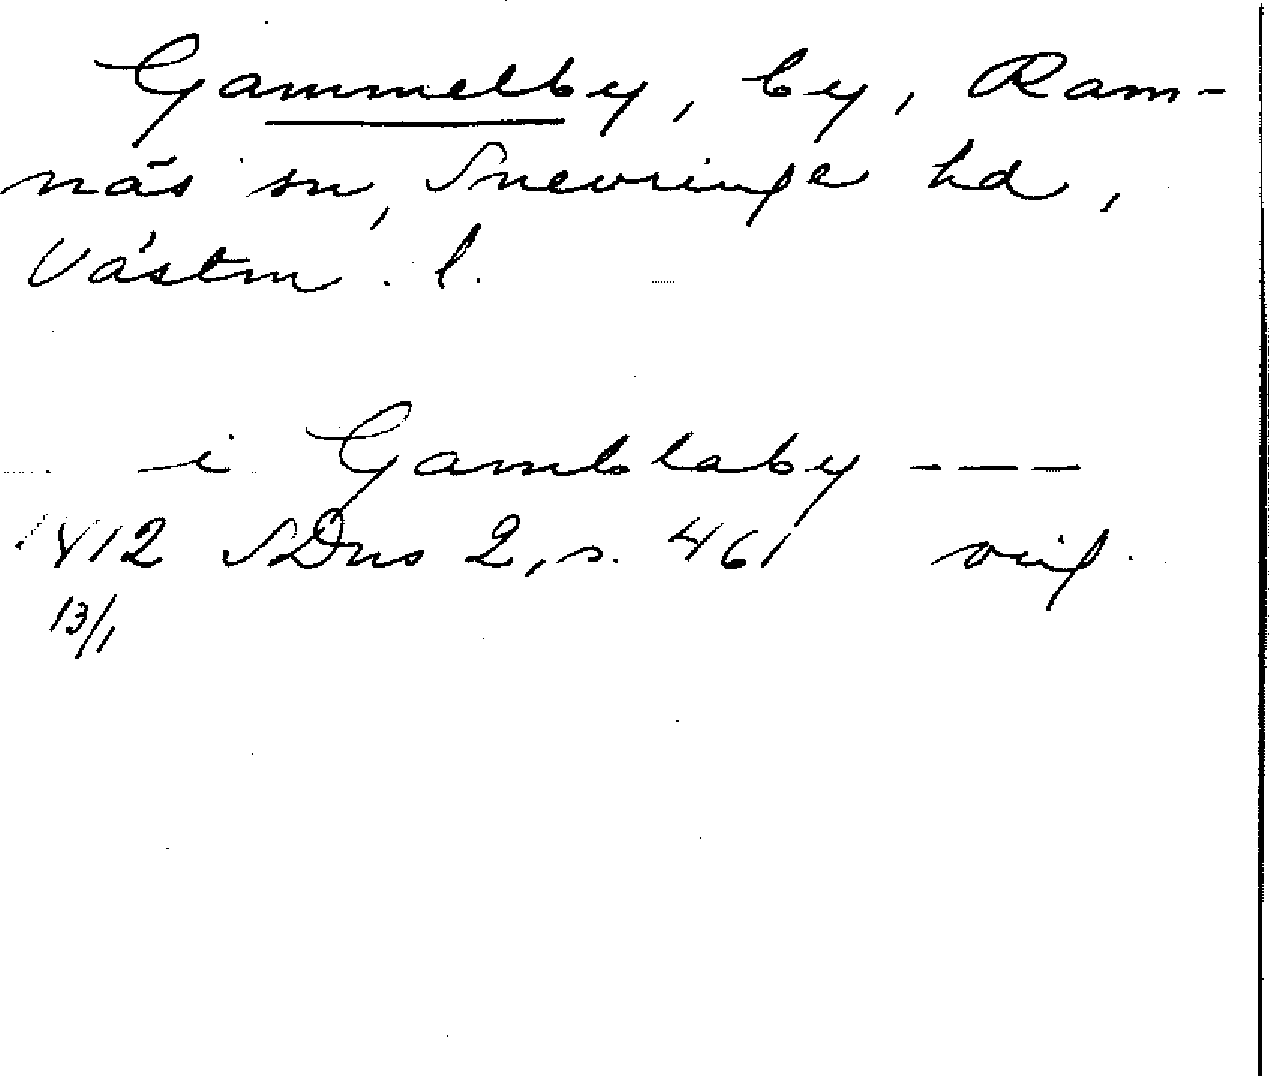 Gammelby, by, Ram-
näs sn, Snevringe hd,
Västm. l.
- i Gamblaby ---
1412 SDns 2, s. 461 orig.
13/1